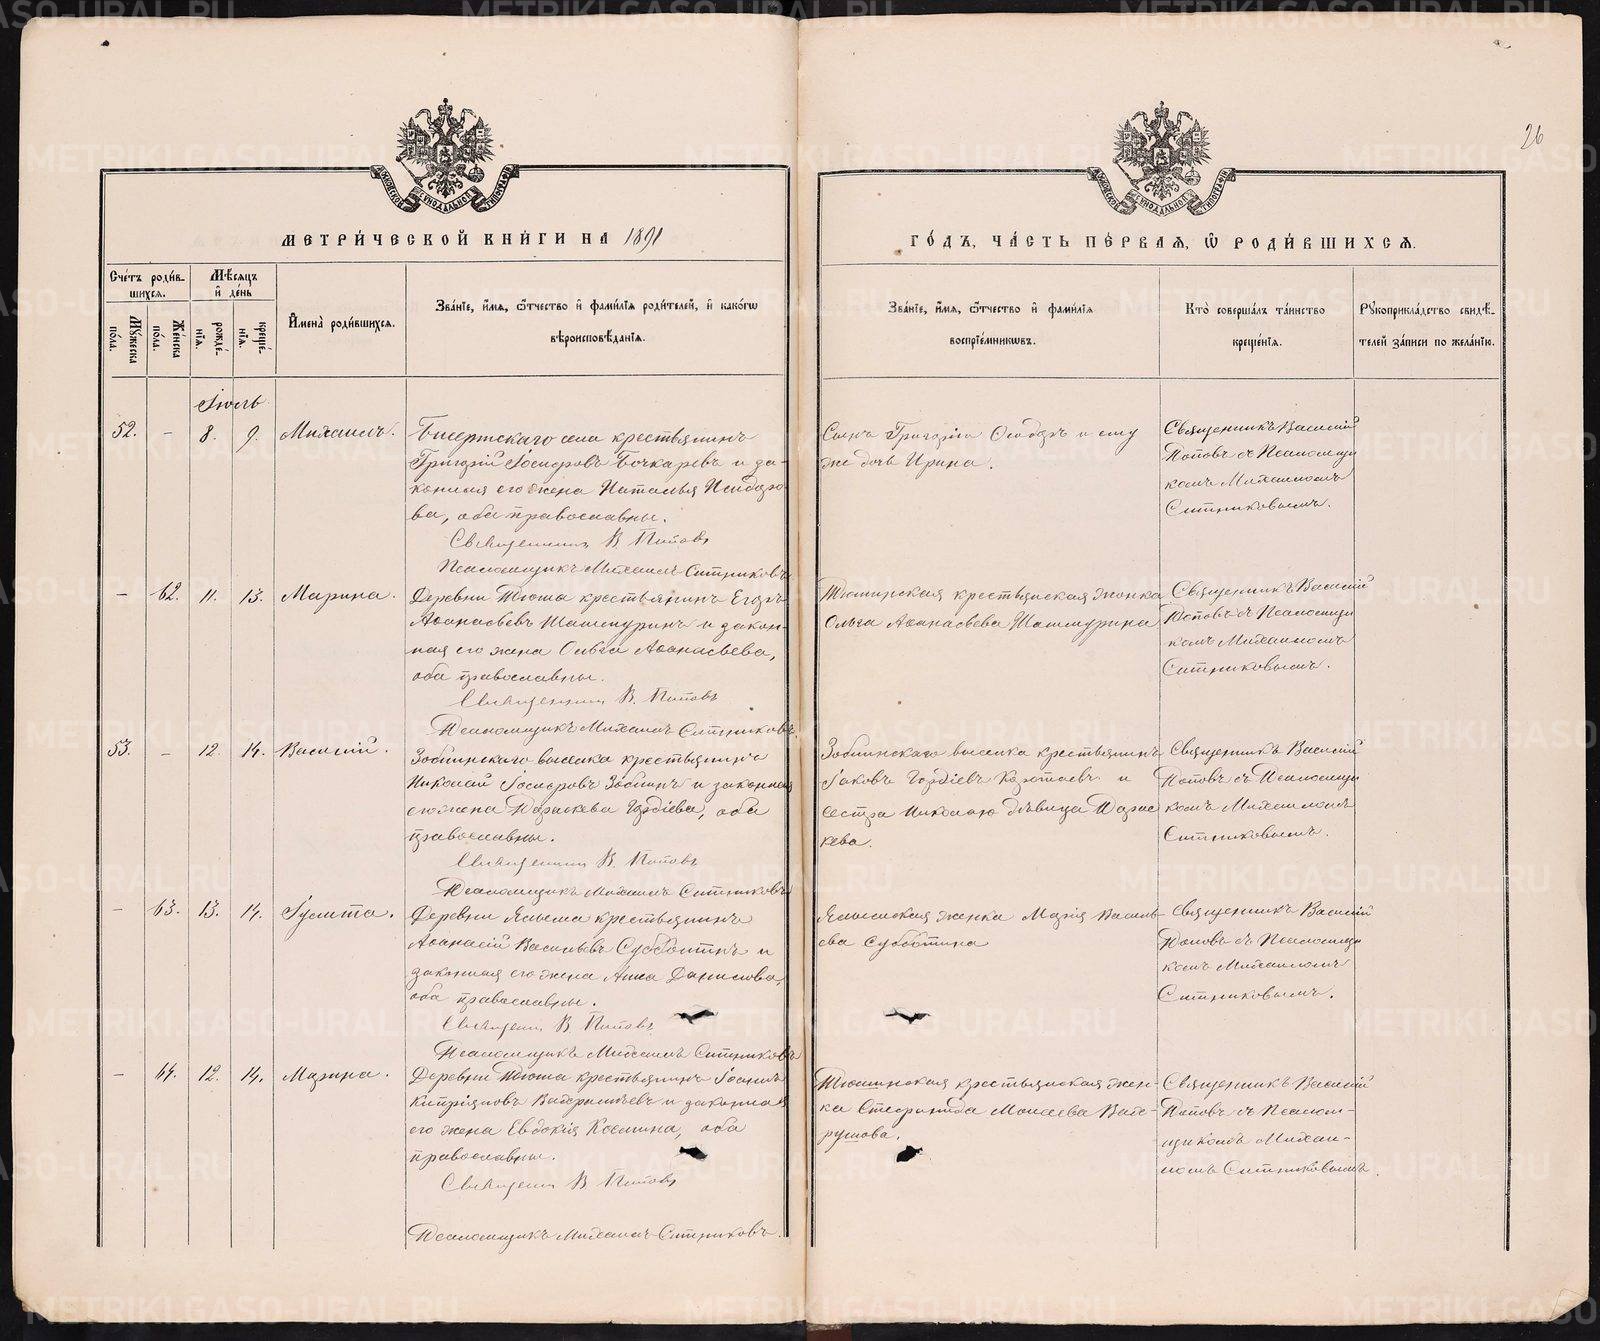 26
МЕТРИ́ЧЕСКОЙ КНИ́ГИ НА 1891
ГО́ДЪ, ЧА́СТЬ ПЕ́РВАЯ, Ѿ РОДИ́ВШИХСЯ.
Сче́тъ роди́в-
шихся.
Мѣ́сяцъ
и҆ де́нь
Мꙋжеска по́ла.
Же́нска по́ла.
рожде́-
нїя.
креще́-
нїя.
И҆мена̀ роди́вшихся.
Зва́нїе, и҆́мя, ѻ҆́тчество и҆ фами́лїя роди́телей, и҆ како́гѡ
вѣроисповѣ́данїя.
Зва́нїе, и҆́мя, ѻ҆́тчество и҆ фами́лїя
воспрїе́мникѡвъ.
Кто̀ соверша́лъ та́инство
креще́нїя.
Рꙋкоприкла́дство свидѣ́-
телей за́писи по жела́нїю.
Іюль
52. – 8. 9. Михаилъ.
Бисертскаго села крестьянинъ
Григорій Іосифовъ Бочкаревъ и за-
конная его жена Наталья Исидоро
ва, оба православны.
Священникъ В Поповъ
Псаломщикъ Михаилъ Ситниковъ
Сынъ Григорія Ѳеодоръ и ему
же дочь Ирина.
Священникъ Василій
Поповъ съ Псаломщи
комъ Михаиломъ
Ситниковымъ.
– 62. 11. 13. Марина.
Деревни Тюша крестьянинъ Егоръ
Аѳанасьевъ Шашмуринъ и закон-
ная его жена Ольга Аѳанасьева,
оба православны.
Священникъ В. Поповъ
Псаломщикъ Михаилъ Ситниковъ
Тюшинская крестьянская женка
Ольга Аѳанасьева Шашмурина
Священникъ Василій
Поповъ съ Псаломщи
комъ Михаиломъ
Ситниковымъ.
53. – 12. 14. Василій.
Зобнинскаго выселка крестьянинъ
Николай Іосифовъ Зобнинъ и законная
его жена Параскева Гордіева, оба
православны.
Священникъ В. Поповъ
Псаломщикъ Михаилъ Ситниковъ
Зобнинскаго выселка крестьянинъ
Іаковъ Гордіевъ и
сестра Николаю дѣвица Парас
кева.
Священникъ Василій
Поповъ съ Псаломщи
комъ Михаиломъ
Ситниковымъ.
– 63. 13. 14. Іулитта.
Деревни крестьянинъ
Аѳанасій Васильевъ Субботинъ и
законная его жена Анна Данилова,
оба православны.
Священникъ В. Поповъ
Псаломщикъ Михаилъ Ситниковъ
женка Марія Василь-
ева Субботина
Священникъ Василій
Поповъ съ Псаломщи
комъ Михаиломъ
Ситниковымъ.
– 64. 12. 14. Марина.
Деревни Тюша крестьянинъ Іоаннъ
Кипріяновъ и законная
его жена Евдокія Космина, оба
православны.
Священникъ В Поповъ
Псаломщикъ Михаилъ Ситниковъ.
Тюшинская крестьянская жен-
ка Стефанида Моисеева
Священникъ Василій
Поповъ съ Псалом-
щикомъ Михаи-
ломъ Ситниковымъ.
METRIKI.GASO-URAL.RU